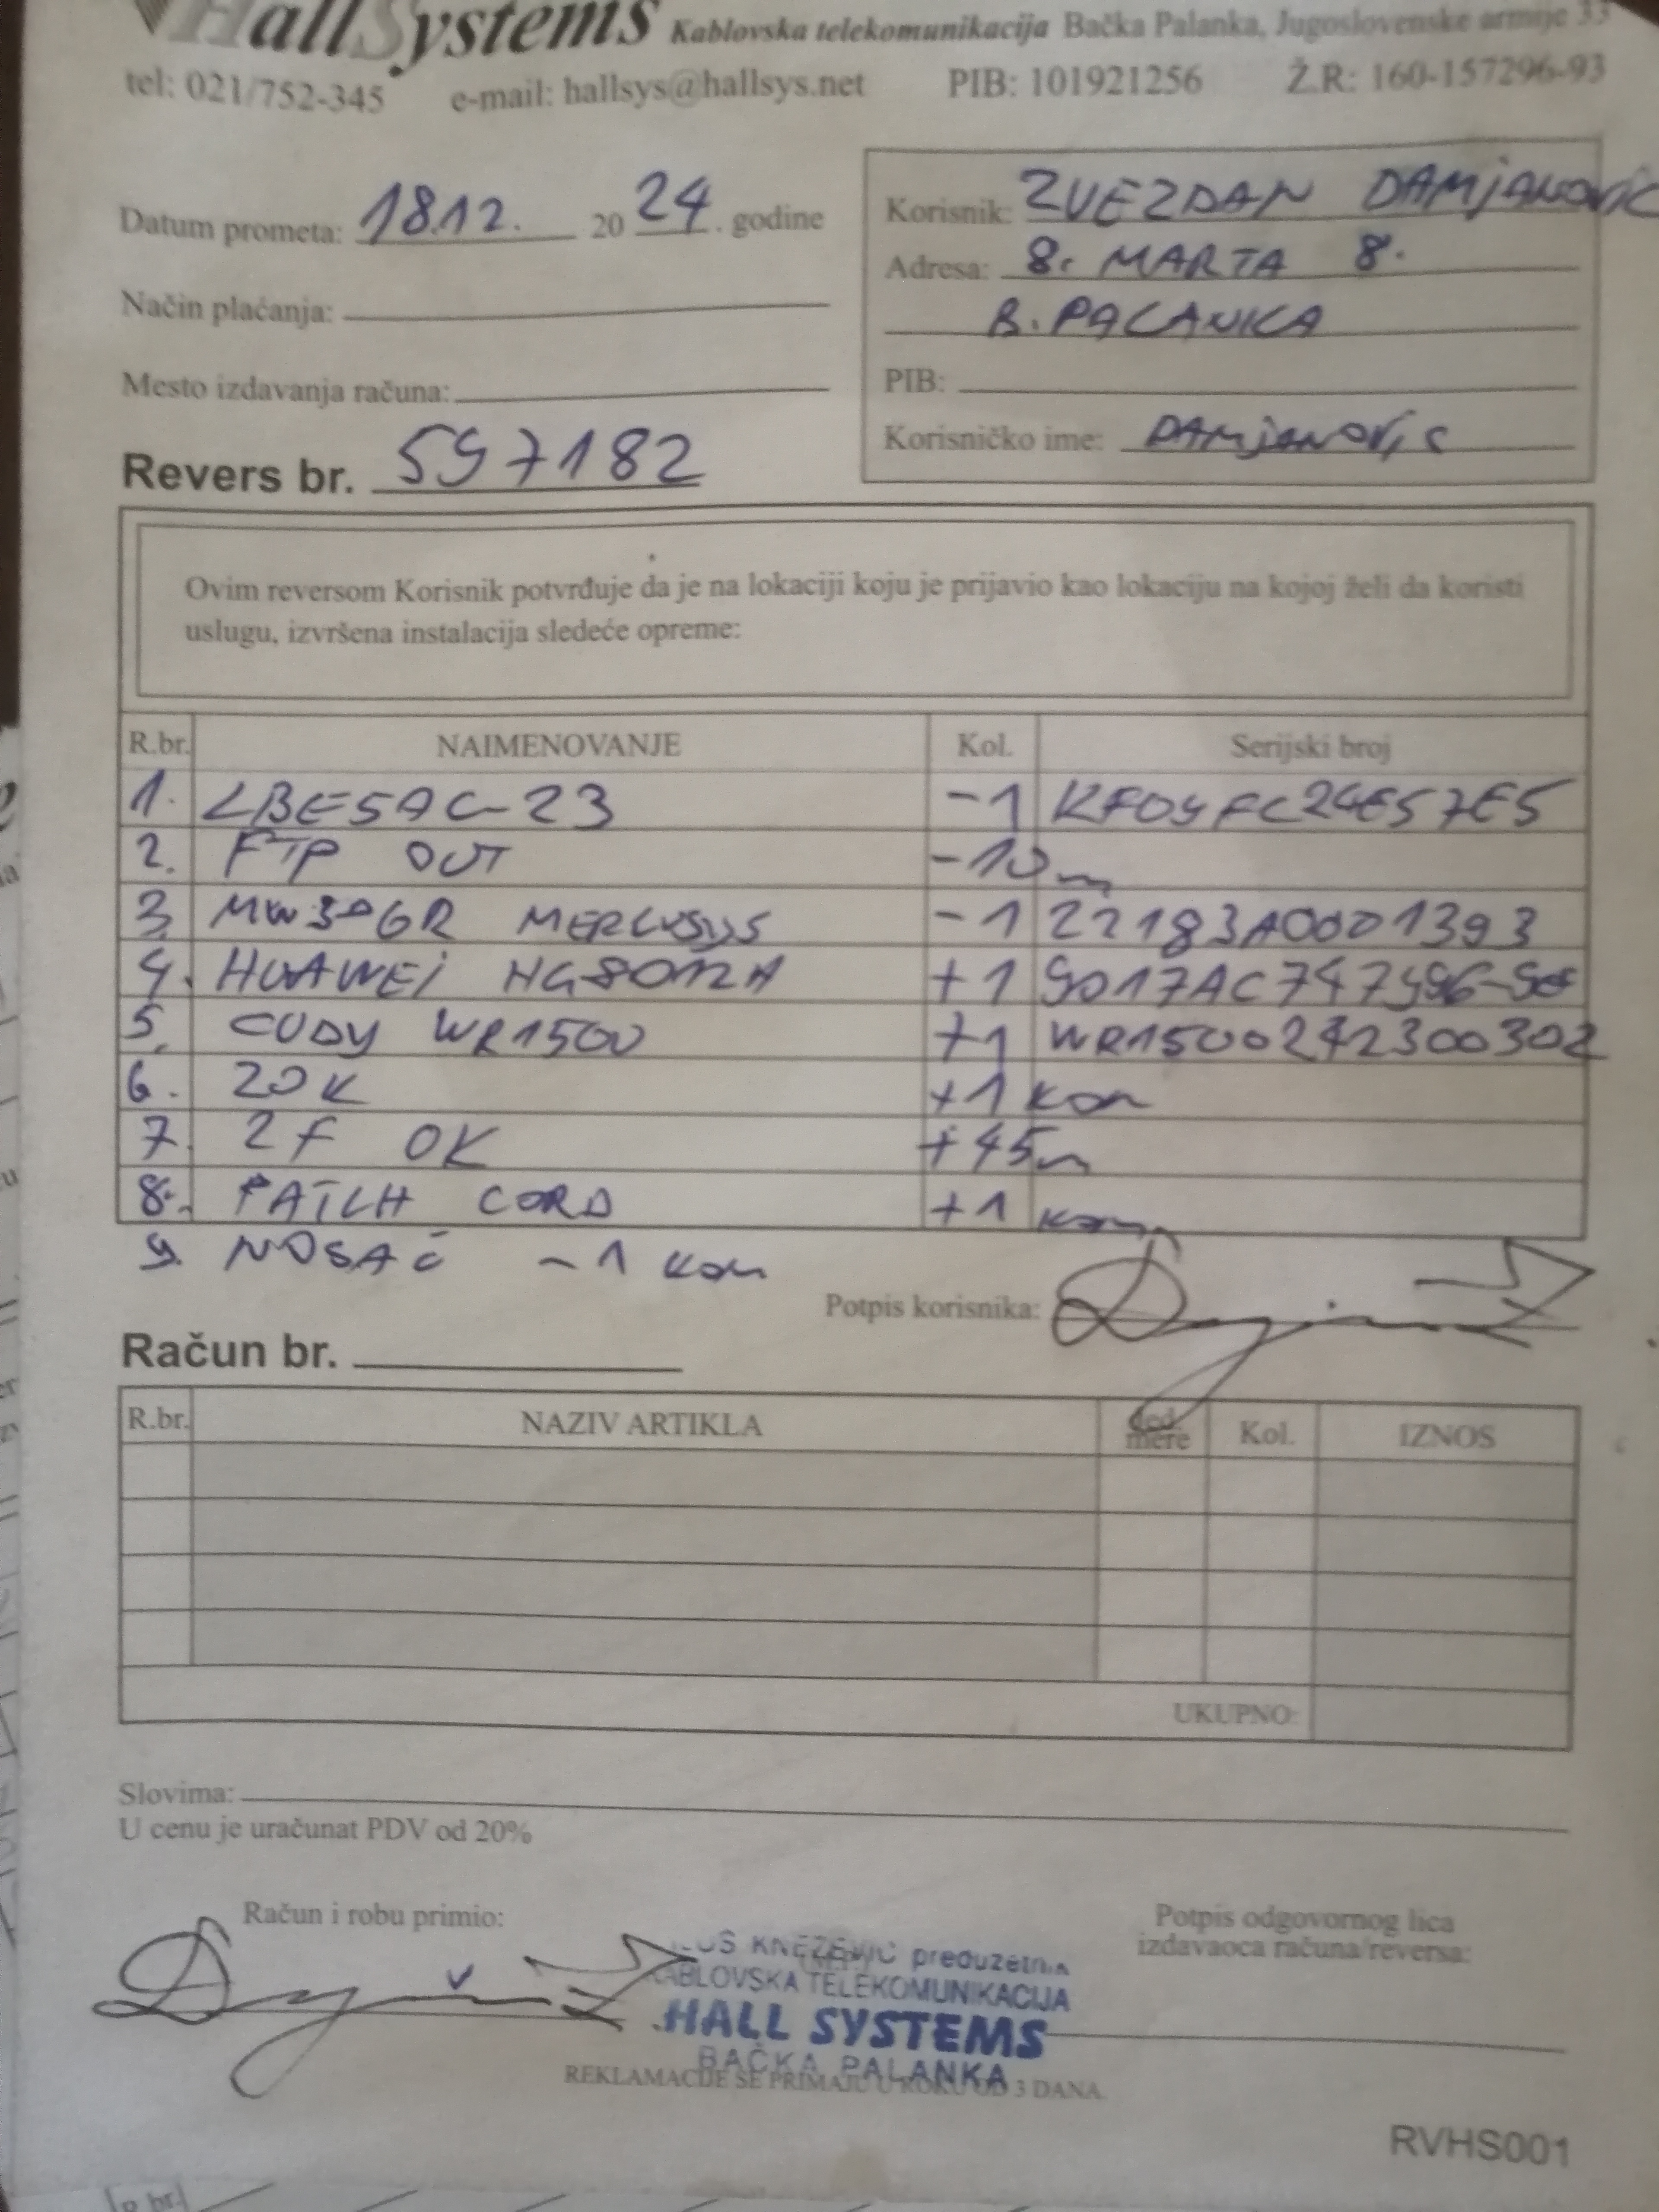 HallSystems Kablovska telekomunikacija Bačka Palanka, Jugoslovenske armije 33
tel: 021/752-345 e-mail: hallsys@hallsys.net PIB: 101921256 Ž.R: 160-157296-93
Datum prometa: 18.12. 2024. godine
Način plaćanja:
Mesto izdavanja računa:
Revers br. 597182
Korisnik: ZVEZDAN DAMJANOVIC
Adresa: 8. MARTA 8.
B. PALANKA
PIB:
Korisničko ime: DAMJANOVIC
Ovim reversom Korisnik potvrđuje da je na lokaciji koju je prijavio kao lokaciju na kojoj želi da koristi
uslugu, izvršena instalacija sledeće opreme:
R.br. NAIMENOVANJE Kol. Serijski broj
1. LBE5AC-23 -1
2. FTP OUT -10m
3. MW306R MERCUSYS -1 22183A0001393
4. HUAWEI HG8012H +1
5. CUDY WR1500 +1 WR1500242300302
6. ZOK +1 kom
7. 2F OK +45m
8. PATCH CORD +1 kom
9. NOSAČ -1 kom
Potpis korisnika:
Račun br.
R.br. NAZIV ARTIKLA Jed. mere Kol. IZNOS
UKUPNO:
Slovima:
U cenu je uračunat PDV od 20%
Račun i robu primio:
Potpis odgovornog lica
izdavaoca računa/reversa:
KNEŽEVIĆ preduzetnik
KABLOVSKA TELEKOMUNIKACIJA
HALL SYSTEMS
BAČKA PALANKA
REKLAMACIJE SE PRIMAJU U ROKU OD 3 DANA
RVHS001
R.br.